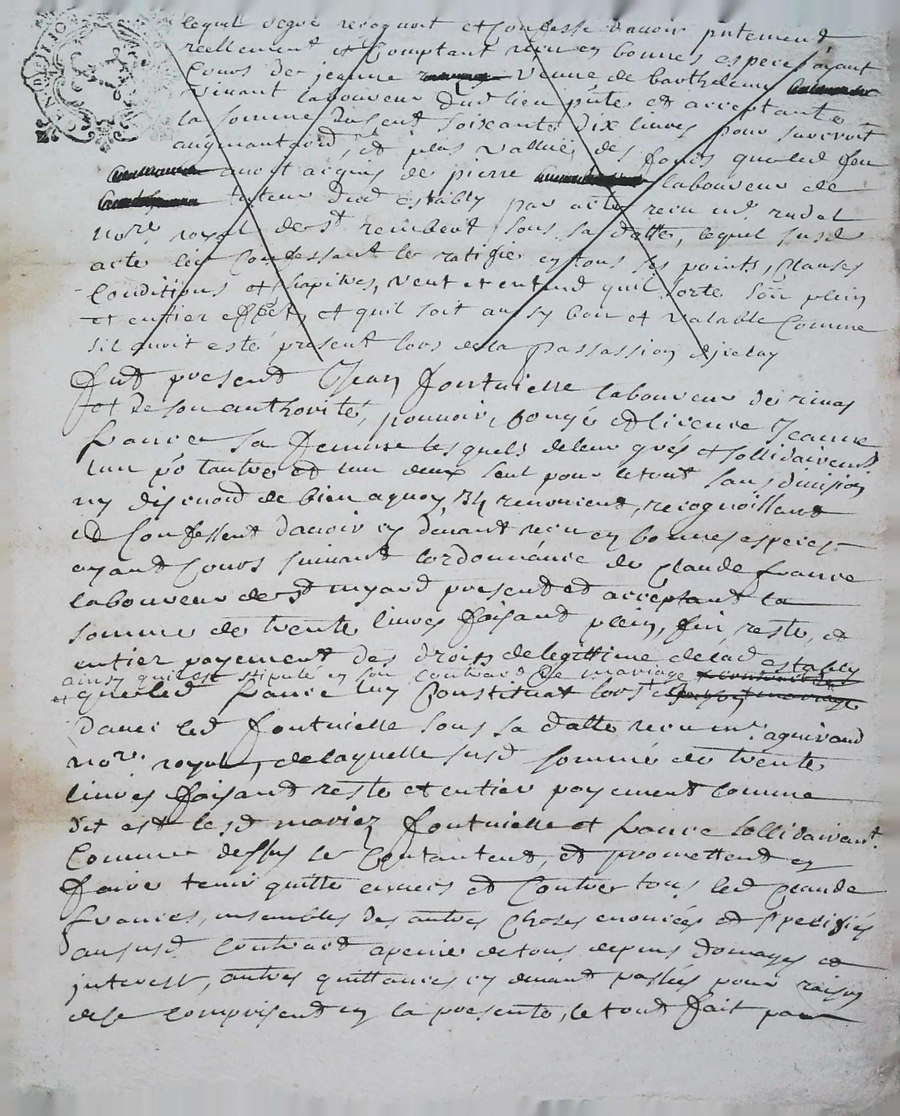 lequel de gré recognoit et confesse d'avoir pntement
reellement et comptant receu en bonnes especes ayant
Cours de jeanne veuve de barthelemy
vivant laboureur dud lieu pnte et acceptante
la somme soixante dix livres pour
et plus vallue des fonds que led feu
avoit acquis de pierre laboureur de
tuteur dud estably par acte receu mr
nore royal de st rembert sous sa datte, lequel susd
acte led Confessant le ratifie en tous ses points, Clauses
Conditions et chapitres, veut et entend quil sorte son plein
et entier effet, et quil soit aussy bon et valable Comme
sil avoit esté present lors de la passassion dicelay
fut present Jean fontvielle laboureur de
et de son authorité, pouvoir, congé et licence Jeanne
france sa femme lesquels de leur grés et sollidairemt
lun po lautre et lun deux seul pour le tout sans division
ny discuord de bien a quoy ils renoncent, recognoissent
et Confessent davoir cy devant receu en bonnes especes
ayant Cours suivant lordonnance de Claude france
laboureur de st present et acceptant la
somme de trente livres faisand plein, fin, reste, et
entier payement des droits de legittime de lad estably
ainsy quil est stipulé en son contract de mariage
et que led france luy Constituat lors
d'avec led fontvielle sous sa datte receu mr
nore royal, de laquelle susd somme de trente
livres faisand reste et entier payement comme
dit est les d mariez fontvielle et france sollidairemt
Comme dessus se Contantent, et promettent en
faire tenir quitte envers et Contre tous led Claude
france, ensembles des autres choses enoncées et speciffiés
au susd Contract a peine de tous depens domages et
interest, autres quittances cy devant passés pour raison
de ce comprisent en la presente, le tout fait par